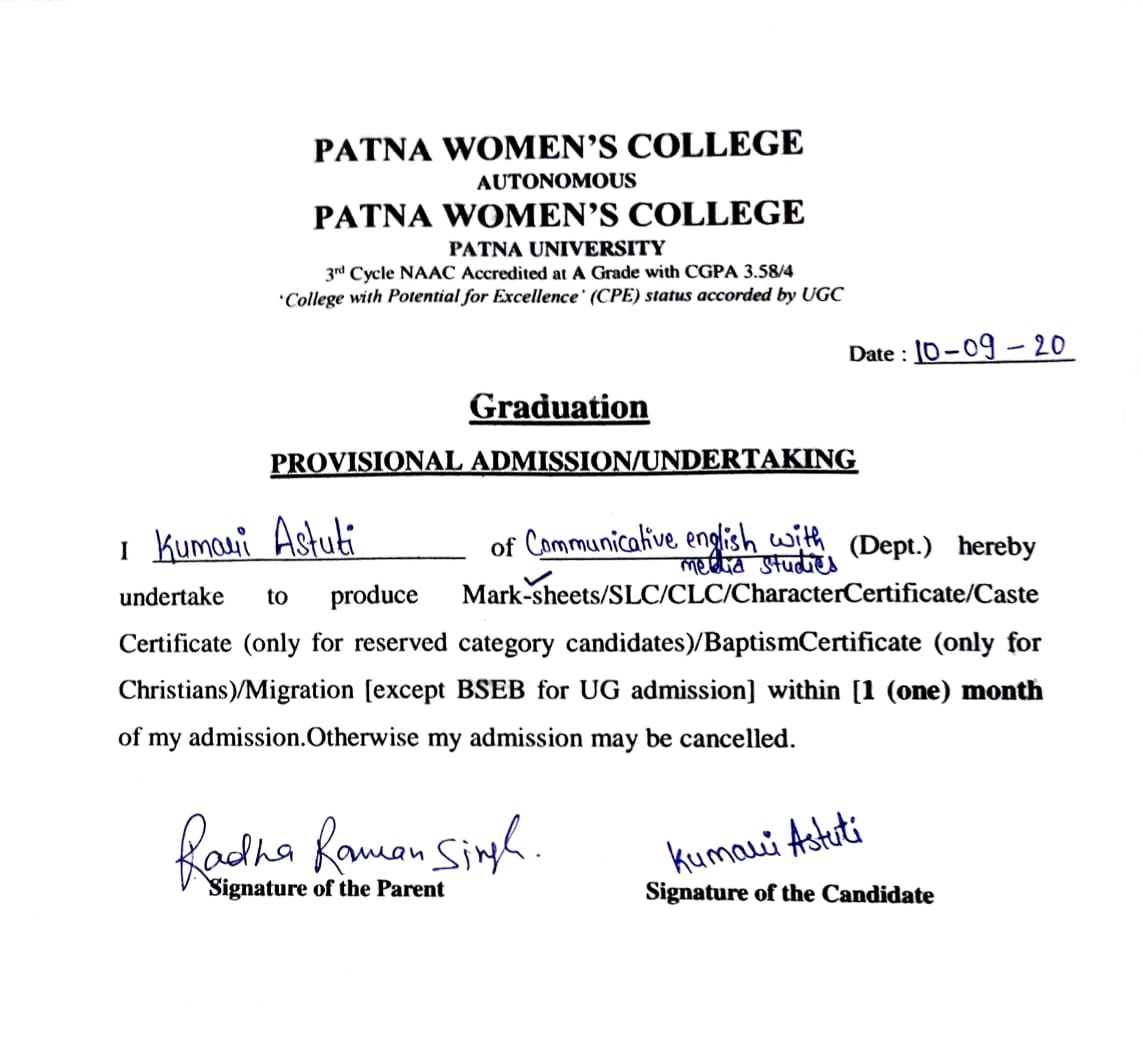 PATNA WOMEN'S COLLEGE
AUTONOMOUS
PATNA WOMEN'S COLLEGE
PATNA UNIVERSITY
3rd Cycle NAAC Accredited at A Grade with CGPA 3.58/4
'College with Potential for Excellence' (CPE) status accorded by UGC
Date : 10-09-20
Graduation
PROVISIONAL ADMISSION/UNDERTAKING
I Kumari Astuti of Communicative english with (Dept.) hereby
media studies
undertake to produce Mark-sheets/SLC/CLC/CharacterCertificate/Caste
Certificate (only for reserved category candidates)/BaptismCertificate (only for
Christians)/Migration [except BSEB for UG admission] within [1 (one) month
of my admission.Otherwise my admission may be cancelled.
Radha Raman Singh. Kumari Astuti
Signature of the Parent Signature of the Candidate